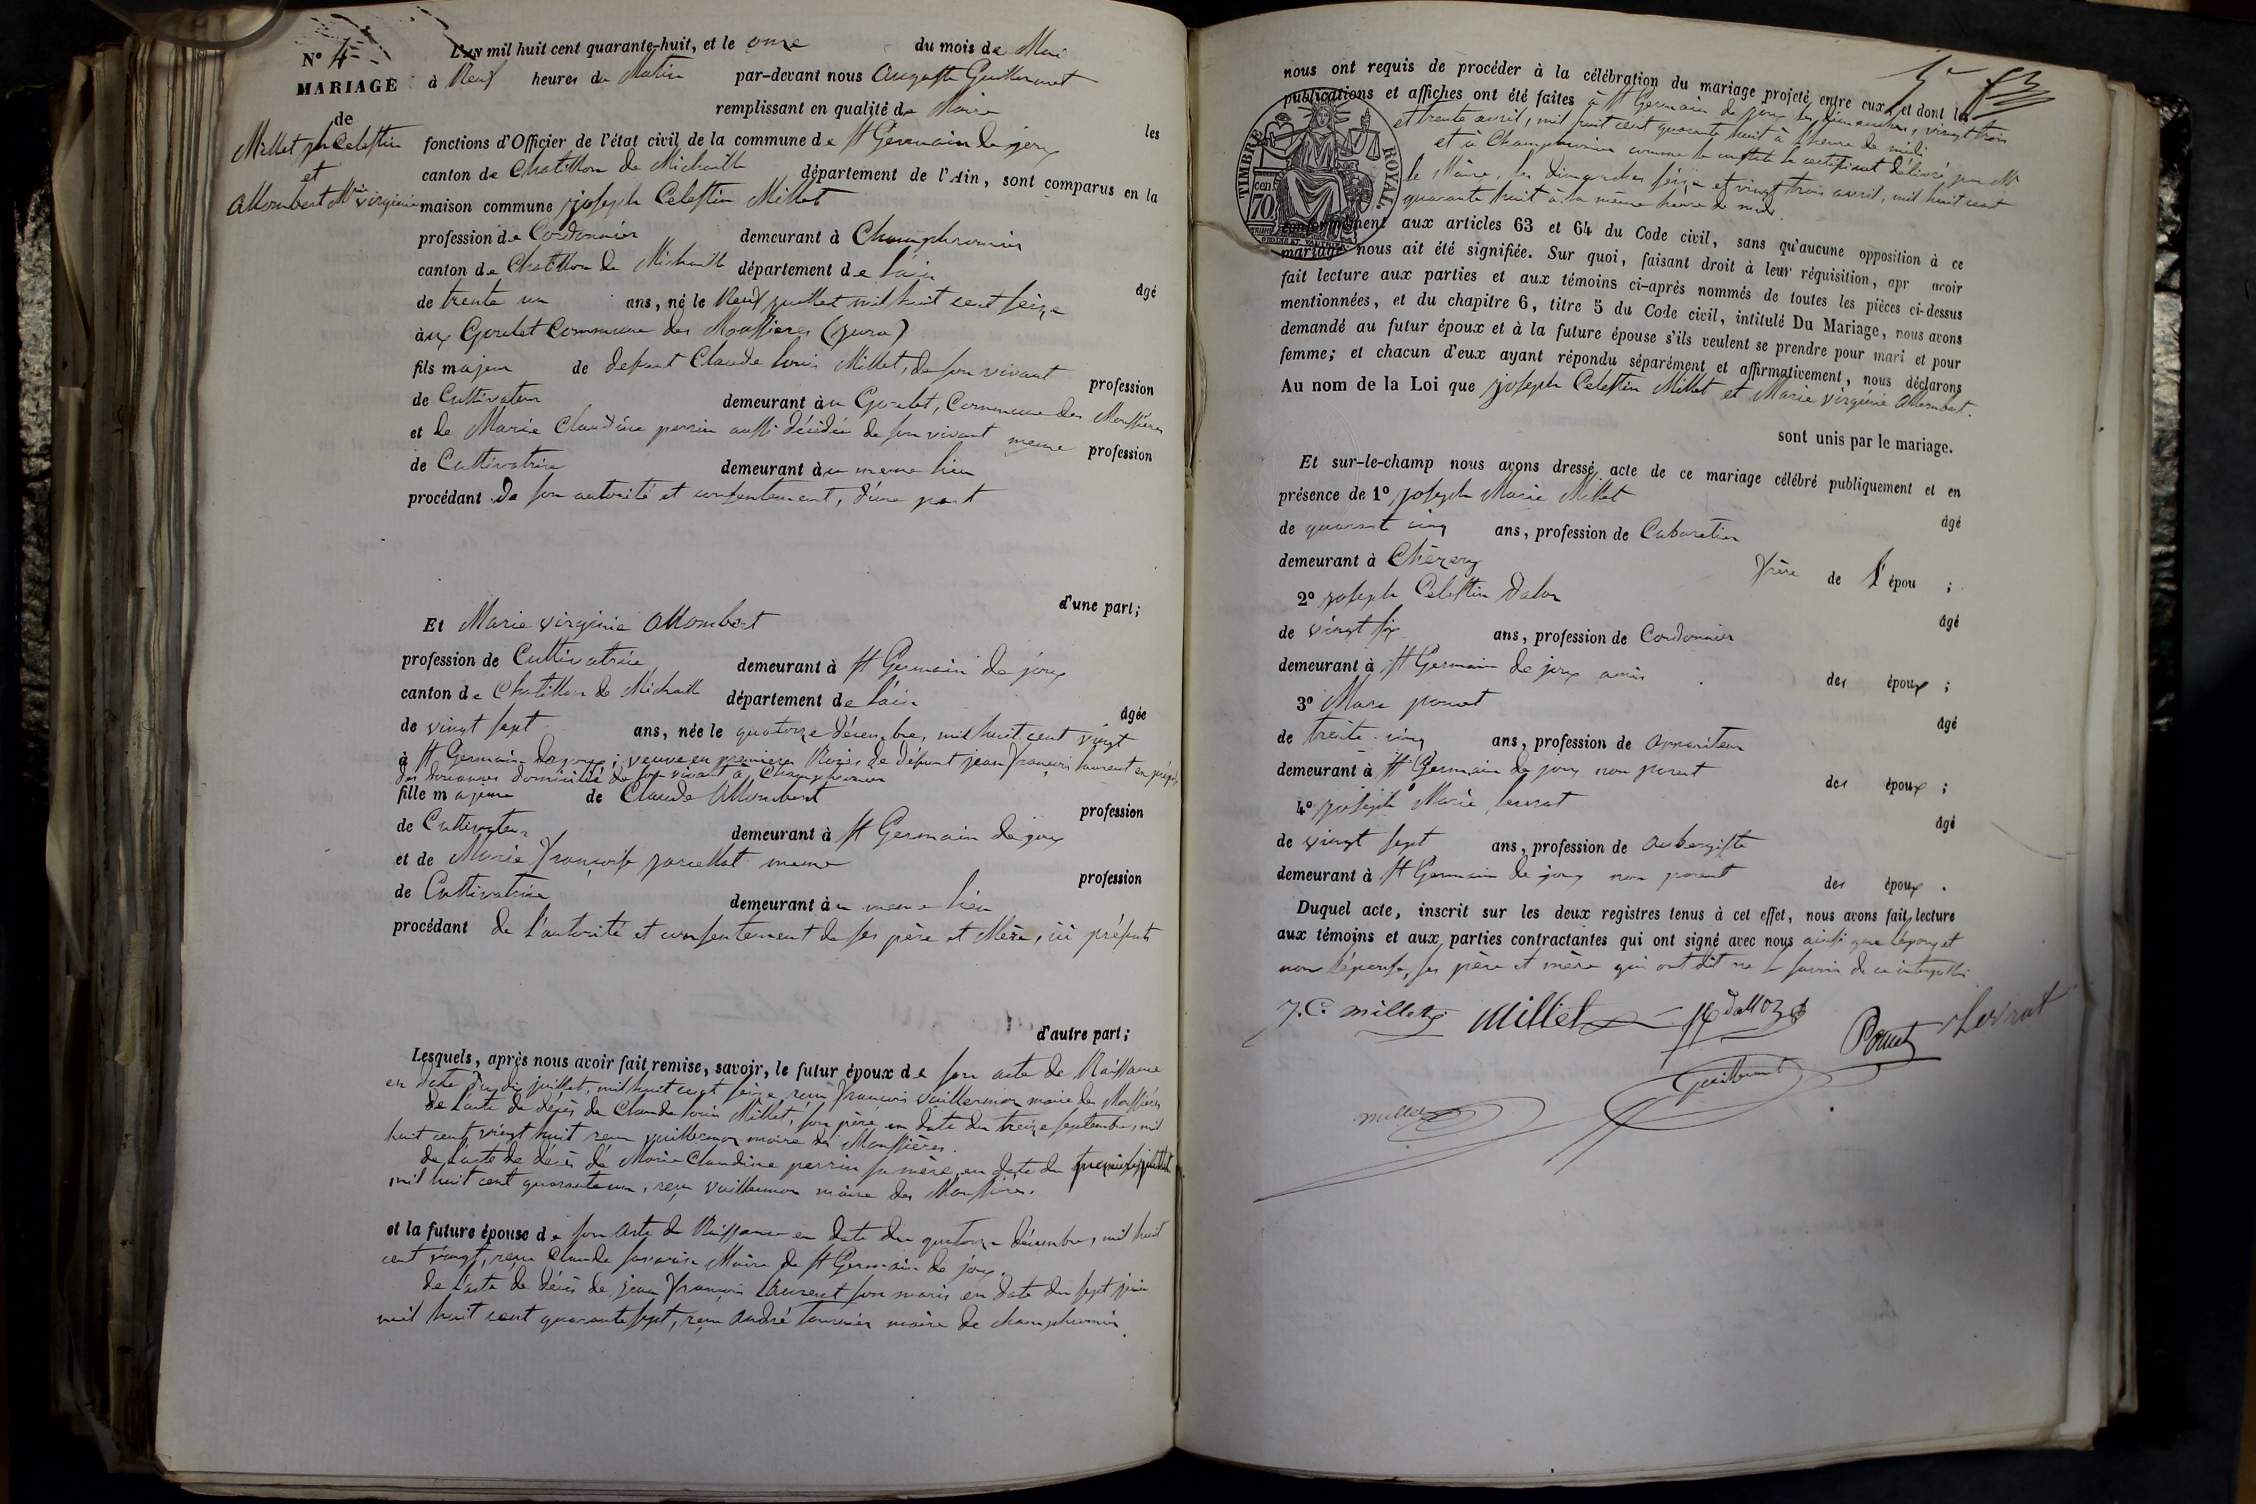 N° 4
MARIAGE
de
Millet jh Celestin
et
Allombert Mie virginie
L'AN mil huit cent quarante-huit, et le onze du mois de Mai
à Neuf heures du Matin par-devant nous Auguste Guillermet
remplissant en qualité de Maire les
fonctions d'Officier de l'état civil de la commune de St Germain de joux
canton de Chatillon de Michaille département de l'Ain, sont comparus en la
maison commune joseph Celestin Millet
profession de Cordonnier demeurant à Champfromier
canton de Chatillon de Michaille département de l'ain âgé
de trente un ans, né le Neuf juillet mil huit cent seize
aux Goulet Commune des Moussieres (jura)
fils majeur de defunt Claude louis Millet, de son vivant profession
de Cultivateur demeurant au Goulet, Commune des Moussières
et de Marie Claudine perrin aussi décédée de son vivant meme profession
de Cultivatrice demeurant au meme lieu
procédant de son autorité et consentement, d'une part
d'une part;
Et Marie virginie Allombert
profession de Cultivatrice demeurant à St Germain de joux
canton de Chatillon de Michaille département de l'ain âgée
de vingt sept ans, née le quatorze décembre, mil huit cent vingt
à St Germain de joux; veuve en premieres Noces de défunt jean françois laurent en
des douanes domicilié de son vivant à Champfromier
fille majeure de Claude Allombert profession
de Cultivateur demeurant à St Germain de joux
et de Marie françoise meme profession
de Cultivatrice demeurant au meme lieu
procédant de l'autorité et consentement de ses père et Mère, ici présents
d'autre part;
Lesquels, après nous avoir fait remise, savoir, le futur époux de son acte de Naissance
en date du dix juillet, mil huit cent seize, reçu françois Vuillermoz maire des Moussières
de l'acte de décès de Claude louis Millet, son père en date du treize septembre, mil
huit cent vingt huit reçu vuillermoz maire des Moussières.
de l'acte de décès de Marie Claudine perrin sa mère, en date du premier juillet
mil huit cent quarante un, reçu Vuillermoz maire des Moussières.
et la future épouse de son acte de Naissance en date du quatorze décembre, mil huit
cent vingt, reçu Claude Maire de St Germain de joux.
de l'acte de décès de jean françois laurent son maris en date du sept juin
mil huit cent quarante sept, reçu andré tournier maire de champfromier.
nous ont requis de procéder à la célébration du mariage projeté entre eux, et dont les
publications et affiches ont été faites à St Germain de joux les dimanches, vingt trois
et trente avril, mil huit cent quarante huit à l'heure de midi
et à Champfromier comme le constate le certificat délivré par Mr
le Maire, les dimanches seize et vingt trois avril, mil huit cent
quarante huit à la même heure de midi.
TIMBRE ROYAL
70 cen
conformément aux articles 63 et 64 du Code civil, sans qu'aucune opposition à ce
mariage nous ait été signifiée. Sur quoi, faisant droit à leur réquisition, apr avoir
fait lecture aux parties et aux témoins ci-après nommés de toutes les pièces ci-dessus
mentionnées, et du chapitre 6, titre 5 du Code civil, intitulé Du Mariage, nous avons
demandé au futur époux et à la future épouse s'ils veulent se prendre pour mari et pour
femme; et chacun d'eux ayant répondu séparément et affirmativement, nous déclarons
Au nom de la Loi que joseph Celestin Millet et Marie virginie allombert.
sont unis par le mariage.
Et sur-le-champ nous avons dressé acte de ce mariage célébré publiquement et en
présence de 1° joseph Marie Millet âgé
de quarante cinq ans, profession de Cabaretier
demeurant à Chézery frère de l'épou ;
2° joseph Celestin Daloz âgé
de vingt six ans, profession de Cordonnier
demeurant à St Germain de joux amis des époux ;
3° Marc poncet âgé
de trente cinq ans, profession de appariteur
demeurant à St Germain de joux non parent des époux ;
4° joseph Marie levrat âgé
de vingt sept ans, profession de aubergiste
demeurant à St Germain de joux non parent des époux .
Duquel acte, inscrit sur les deux registres tenus à cet effet, nous avons fait lecture
aux témoins et aux parties contractantes qui ont signé avec nous ainsi que l'époux et
non l'épouse, ses père et mère qui ont dit ne le savoir de ce interpellés
J. C. millet Millet Dalloz Poncet Levrat
Guillermet
millet